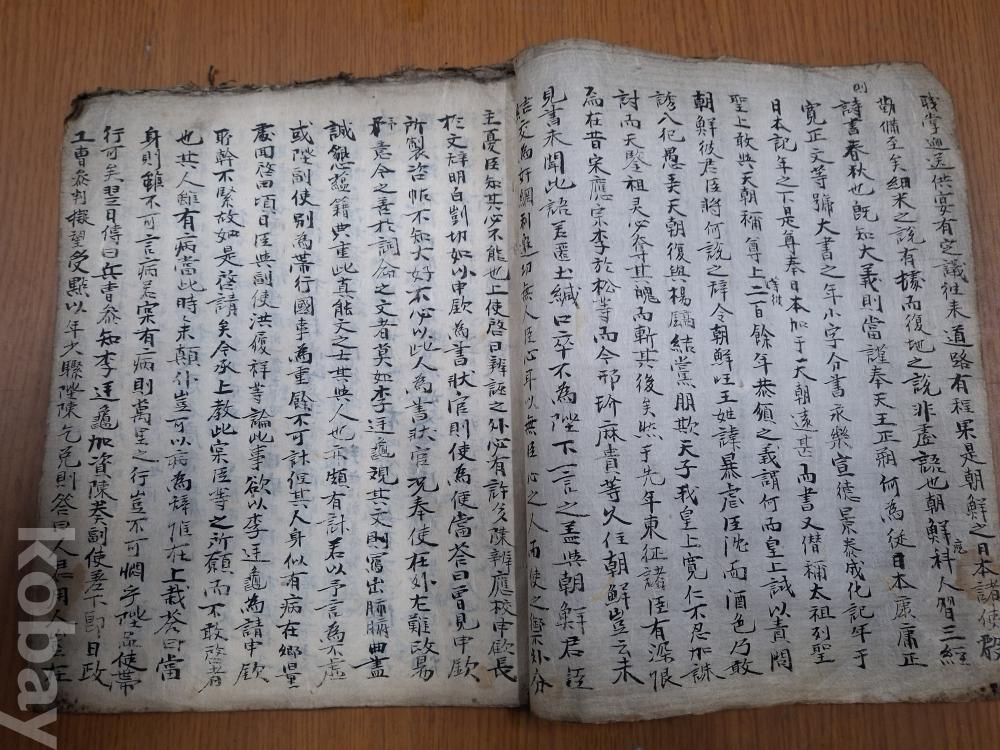 職掌迎送供宴有定議往來道路有程果是朝鮮之日本諸使殷
勤備至矣細米之說有據而復地之說非盡誣也朝鮮科人習三經
則
詩書春秋也旣知大義則當謹奉天王正朔何為從日本康庸正
寬正文等號大書之年小字分書永樂宣德景泰成化記年于
日本記年之下是尊奉日本加于天朝遠甚而書又僭稱太祖列聖
聖上敢與天朝稱尊上二百餘年恭順之義謂何而皇上試以責問
朝鮮彼君臣將何說之辭今朝鮮王姓諱暴虐臣沈酒色乃敢
誘入犯愚弄天朝復與楊鎬結黨朋欺天子我皇上寬仁不忍加誅
討而天監祖灵必奪其魄而斬其後矣然于先年東征諸臣有深恨
焉在昔宋應宗李於松等而今邢玠麻貴等久住朝鮮豈云未
見書未聞此語至噩土緘口卒不為陛下一言之盖與朝鮮君臣
主憂臣知其必不能也上使啓曰辨誣之外必有許多陳辨應校申欽長
於文辭明白剴切如以申欽為書狀官則使為使當答曰曾見申欽
所製咨帖不知大好不必以此人為書狀官况奉使在外尤難改易
予意今之善於詞命之文者莫如李廷龜觀其文則寫出肺腑曲盡
誠懇蘊籍典重此眞能文之士其與人也亦頗有計若以予言為不虛
或陞副使別為帶行國事為重餘不可計但其人身似有病在鄉量
處聞啓曰頃日臣與副使洪履祥等論此事欲以李廷龜為請申欽
所幹不緊故如是啓請矣今承上敎此宗臣等之所願而不敢啓者
也其人雖有病當此時末顛仆豈可以病為辭惟在上裁答曰當
身則雖不可言病若宗有病則萬里之行豈不可憫乎陞品使帶
行可矣翌日傳曰兵曹叅知李廷龜加資陳奏副使差下卽日政
工曹叅判擬望受點以年少驟陞陳乞免則答曰人君用人